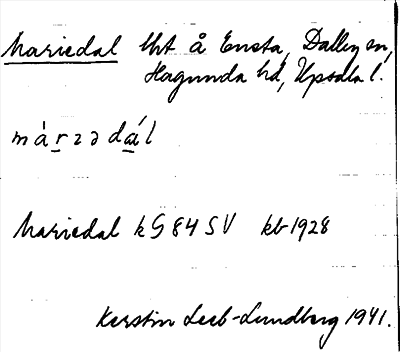 Mariedal lht å Ensta, Dalby sn,
Hagunda hd, Upsala l.
màrzədál
Mariedal k G 84 SV kb 1928
Kerstin Leeb-Lundberg 1941.